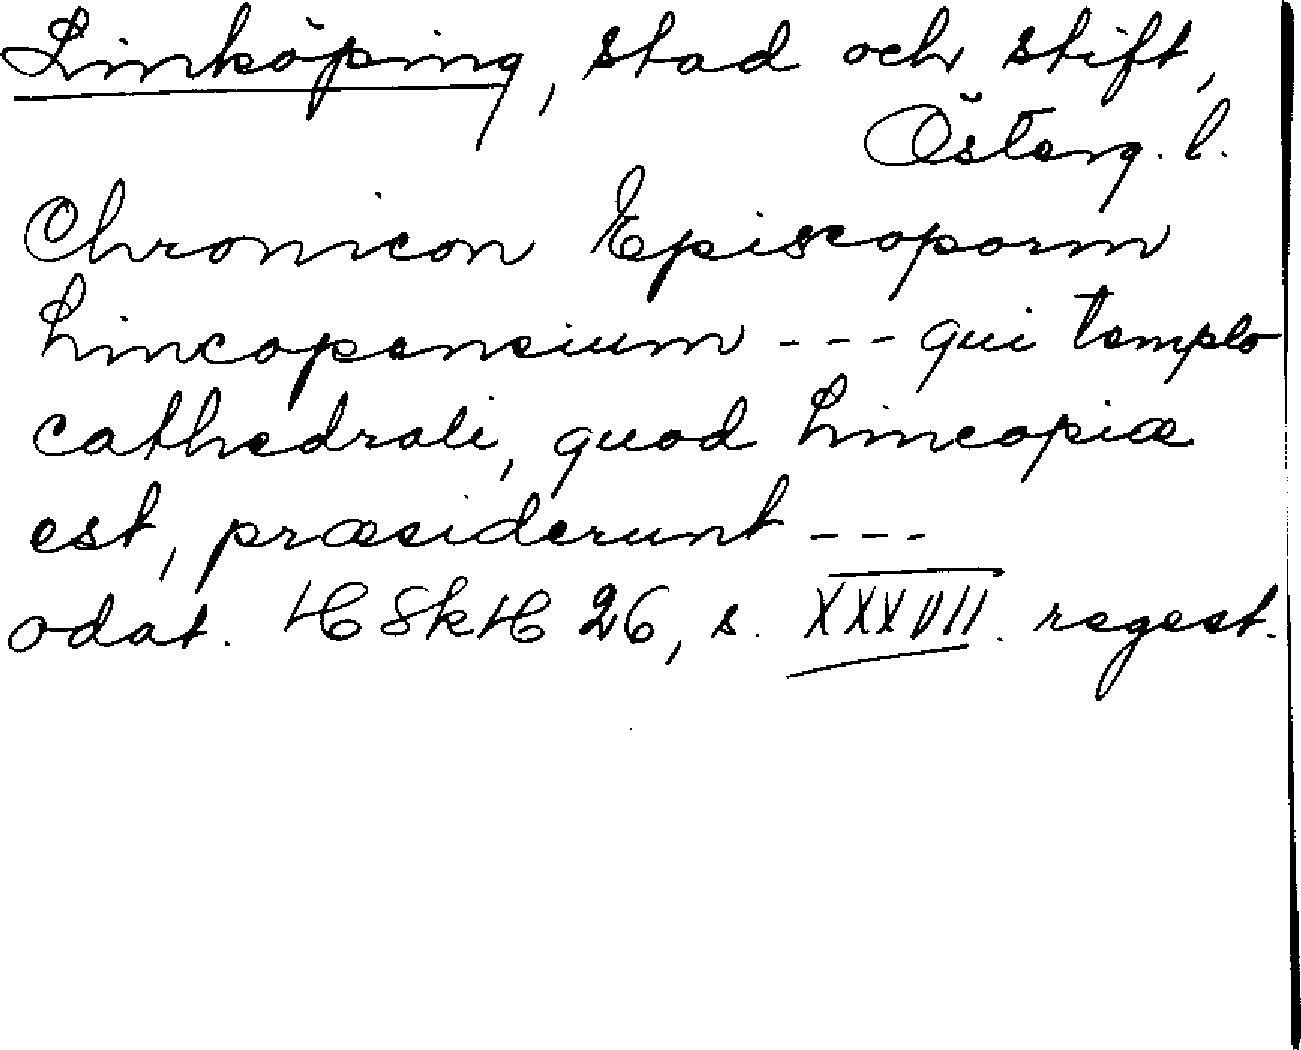 Linköping, stad och stift,
Österg. l.
Chronicon Episcoporm
Lincopensium --- qui templo
cathedrali, quod Lincopiæ
est, præsiderunt ---
odat. HSkH 26, s. XXXVII. regest.